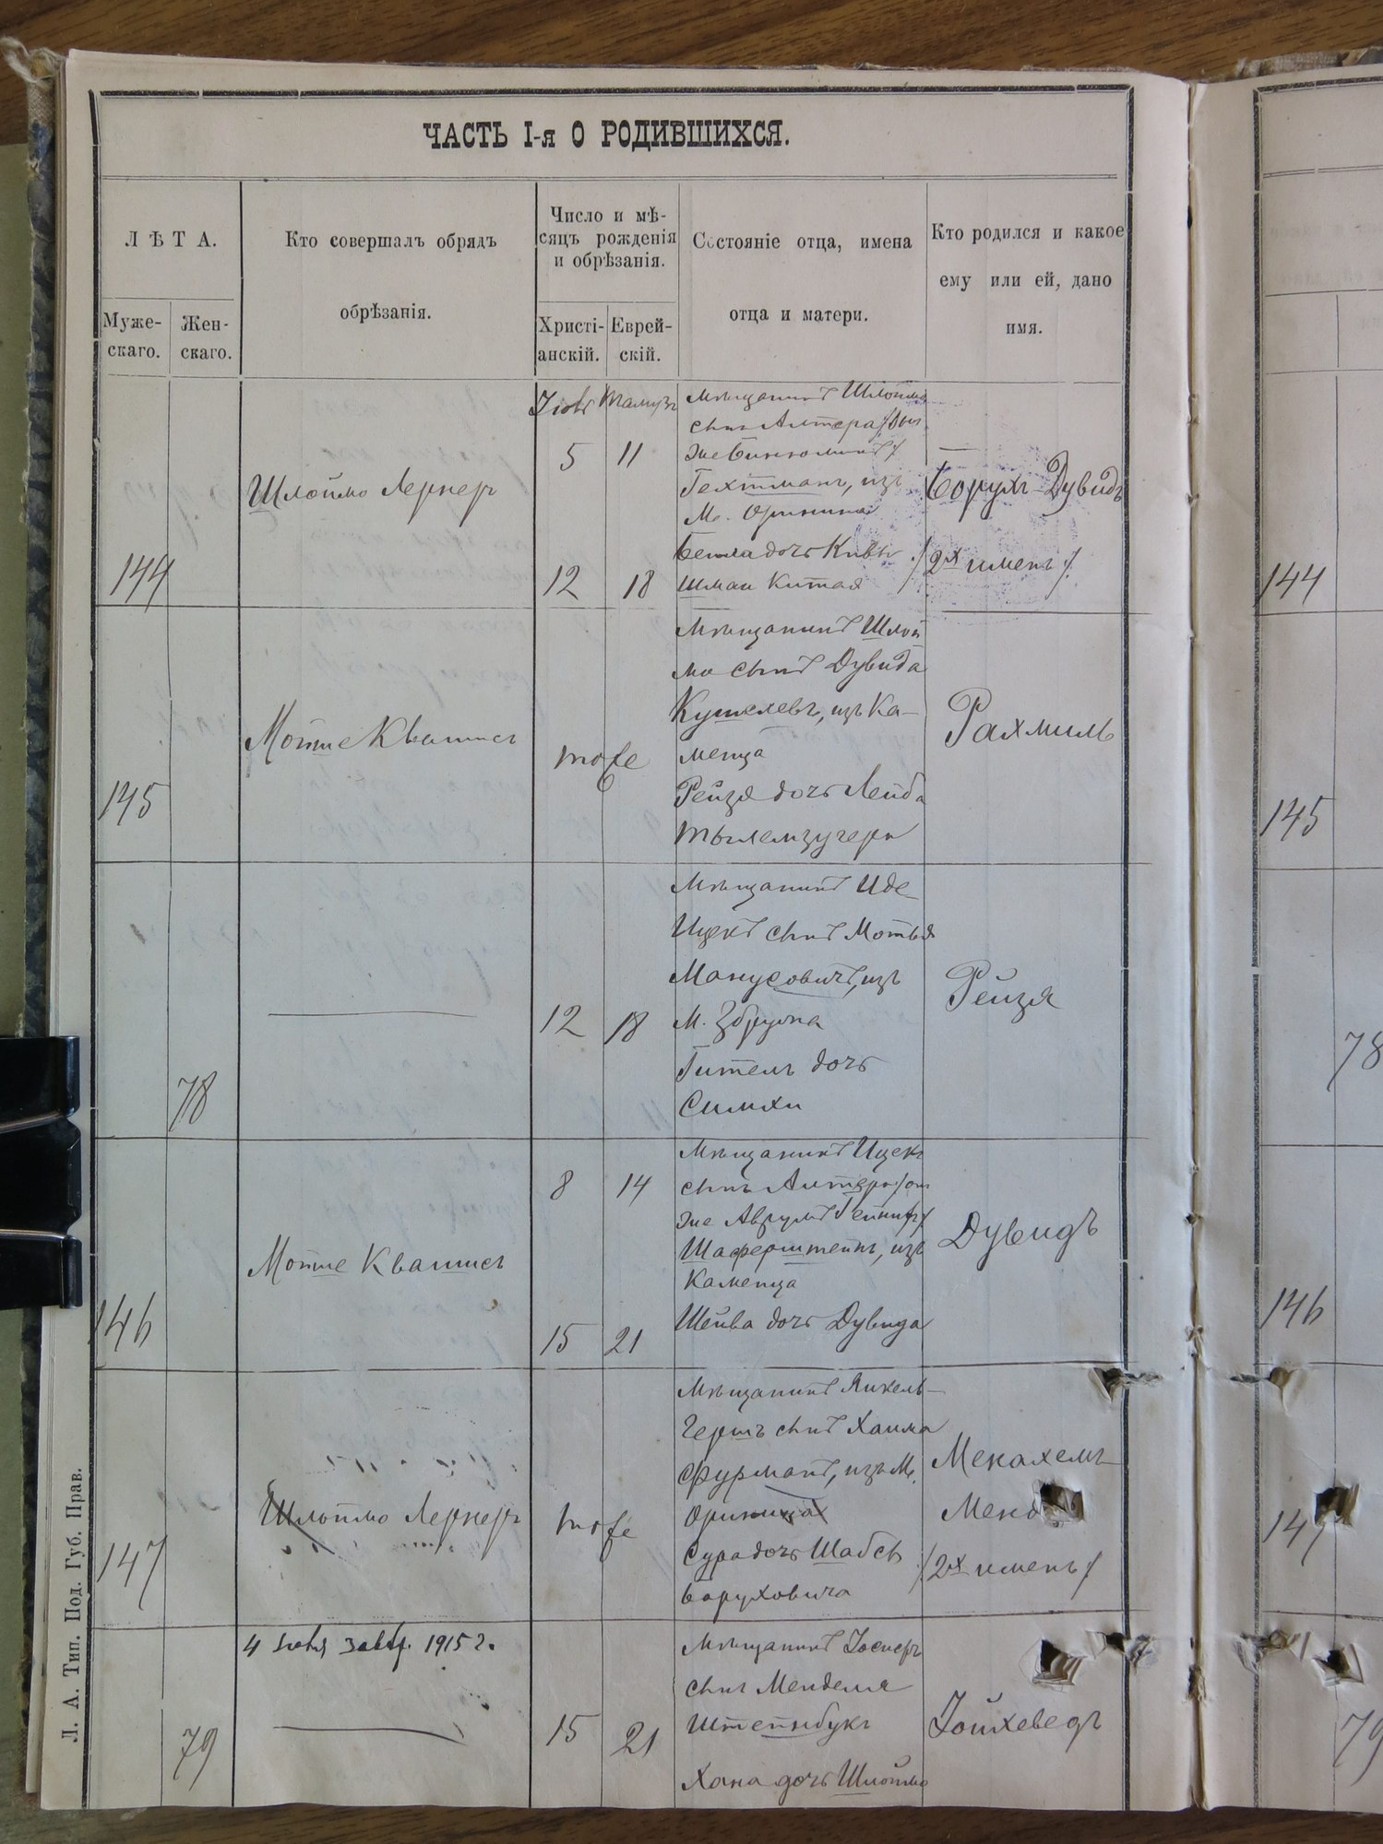 ЧАСТЬ I-я О РОДИВШИХСЯ.
ЛѢТА.
Муже-
скаго.
Жен-
скаго.
Кто совершалъ обрядъ
обрѣзанія.
Число и мѣ-
сяцъ рожденія
и обрѣзанія.
Христі-
анскій.
Еврей-
скій.
Состояніе отца, имена
отца и матери.
Кто родился и какое
ему или ей, дано
имя.
144
Шлоймо Лернеръ
5
11
12
18
Мѣщанинъ Шлоймо
сынъ Алтера
Гехтманъ, изъ
М. Оринина
Бейла дочь Кивы
Борухъ-Дувидъ
/2хъ именъ/.
144
145
Мотте Квашисъ
тоже
Мѣщанинъ Шлой
мо сынъ Дувида
Кушелевъ, изъ Ка-
менца
Рейзя дочь Лейба
Рахмиль
145
78
12
18
Мѣщанинъ Иде
Ицекъ сынъ Мотья
Манусовичъ, изъ
М. Збрижа
Гитель дочь
Симхи
Рейзя
78
146
Мотте Квашисъ
8
14
15
21
Мѣщанинъ Ицекъ
сынъ Алтера /он
же Аврумъ
Шаферштейнъ, изъ
Каменца
Шейва дочь Дувида
Дувидъ
146
147
Шлоймо Лернеръ
тоже
Мѣщанинъ Янкель-
Гершъ сынъ Хаима
Фурманъ, изъ М.
Оринина
Сура дочь Шабсы
Боруховича
Менд
/2хъ именъ/
147
4 Іюля 1915 г.
79
15
21
Мѣщанинъ Іосифъ
сынъ Менделя
Хана дочь Шлоймо
Іойхеведъ
79
Л. А. Тип. Под. Губ. Прав.